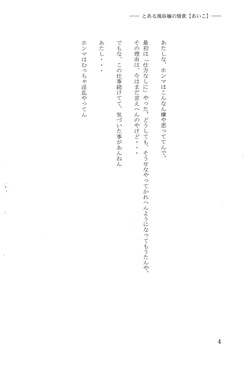 ―― とある風俗嬢の情景【あいこ】――
あたしな、ホンマはこんなん嫌や思っててんで、
最初は「仕方なしに」やった。どうしても、そうせなやってかれへんようになってもうたんや。
その理由は、今はまだ言えへんのやけど・・・
でもな、この仕事続けてて、気づいた事があんねん
あたし・・・
ホンマはむっちゃ淫乱やってん
4